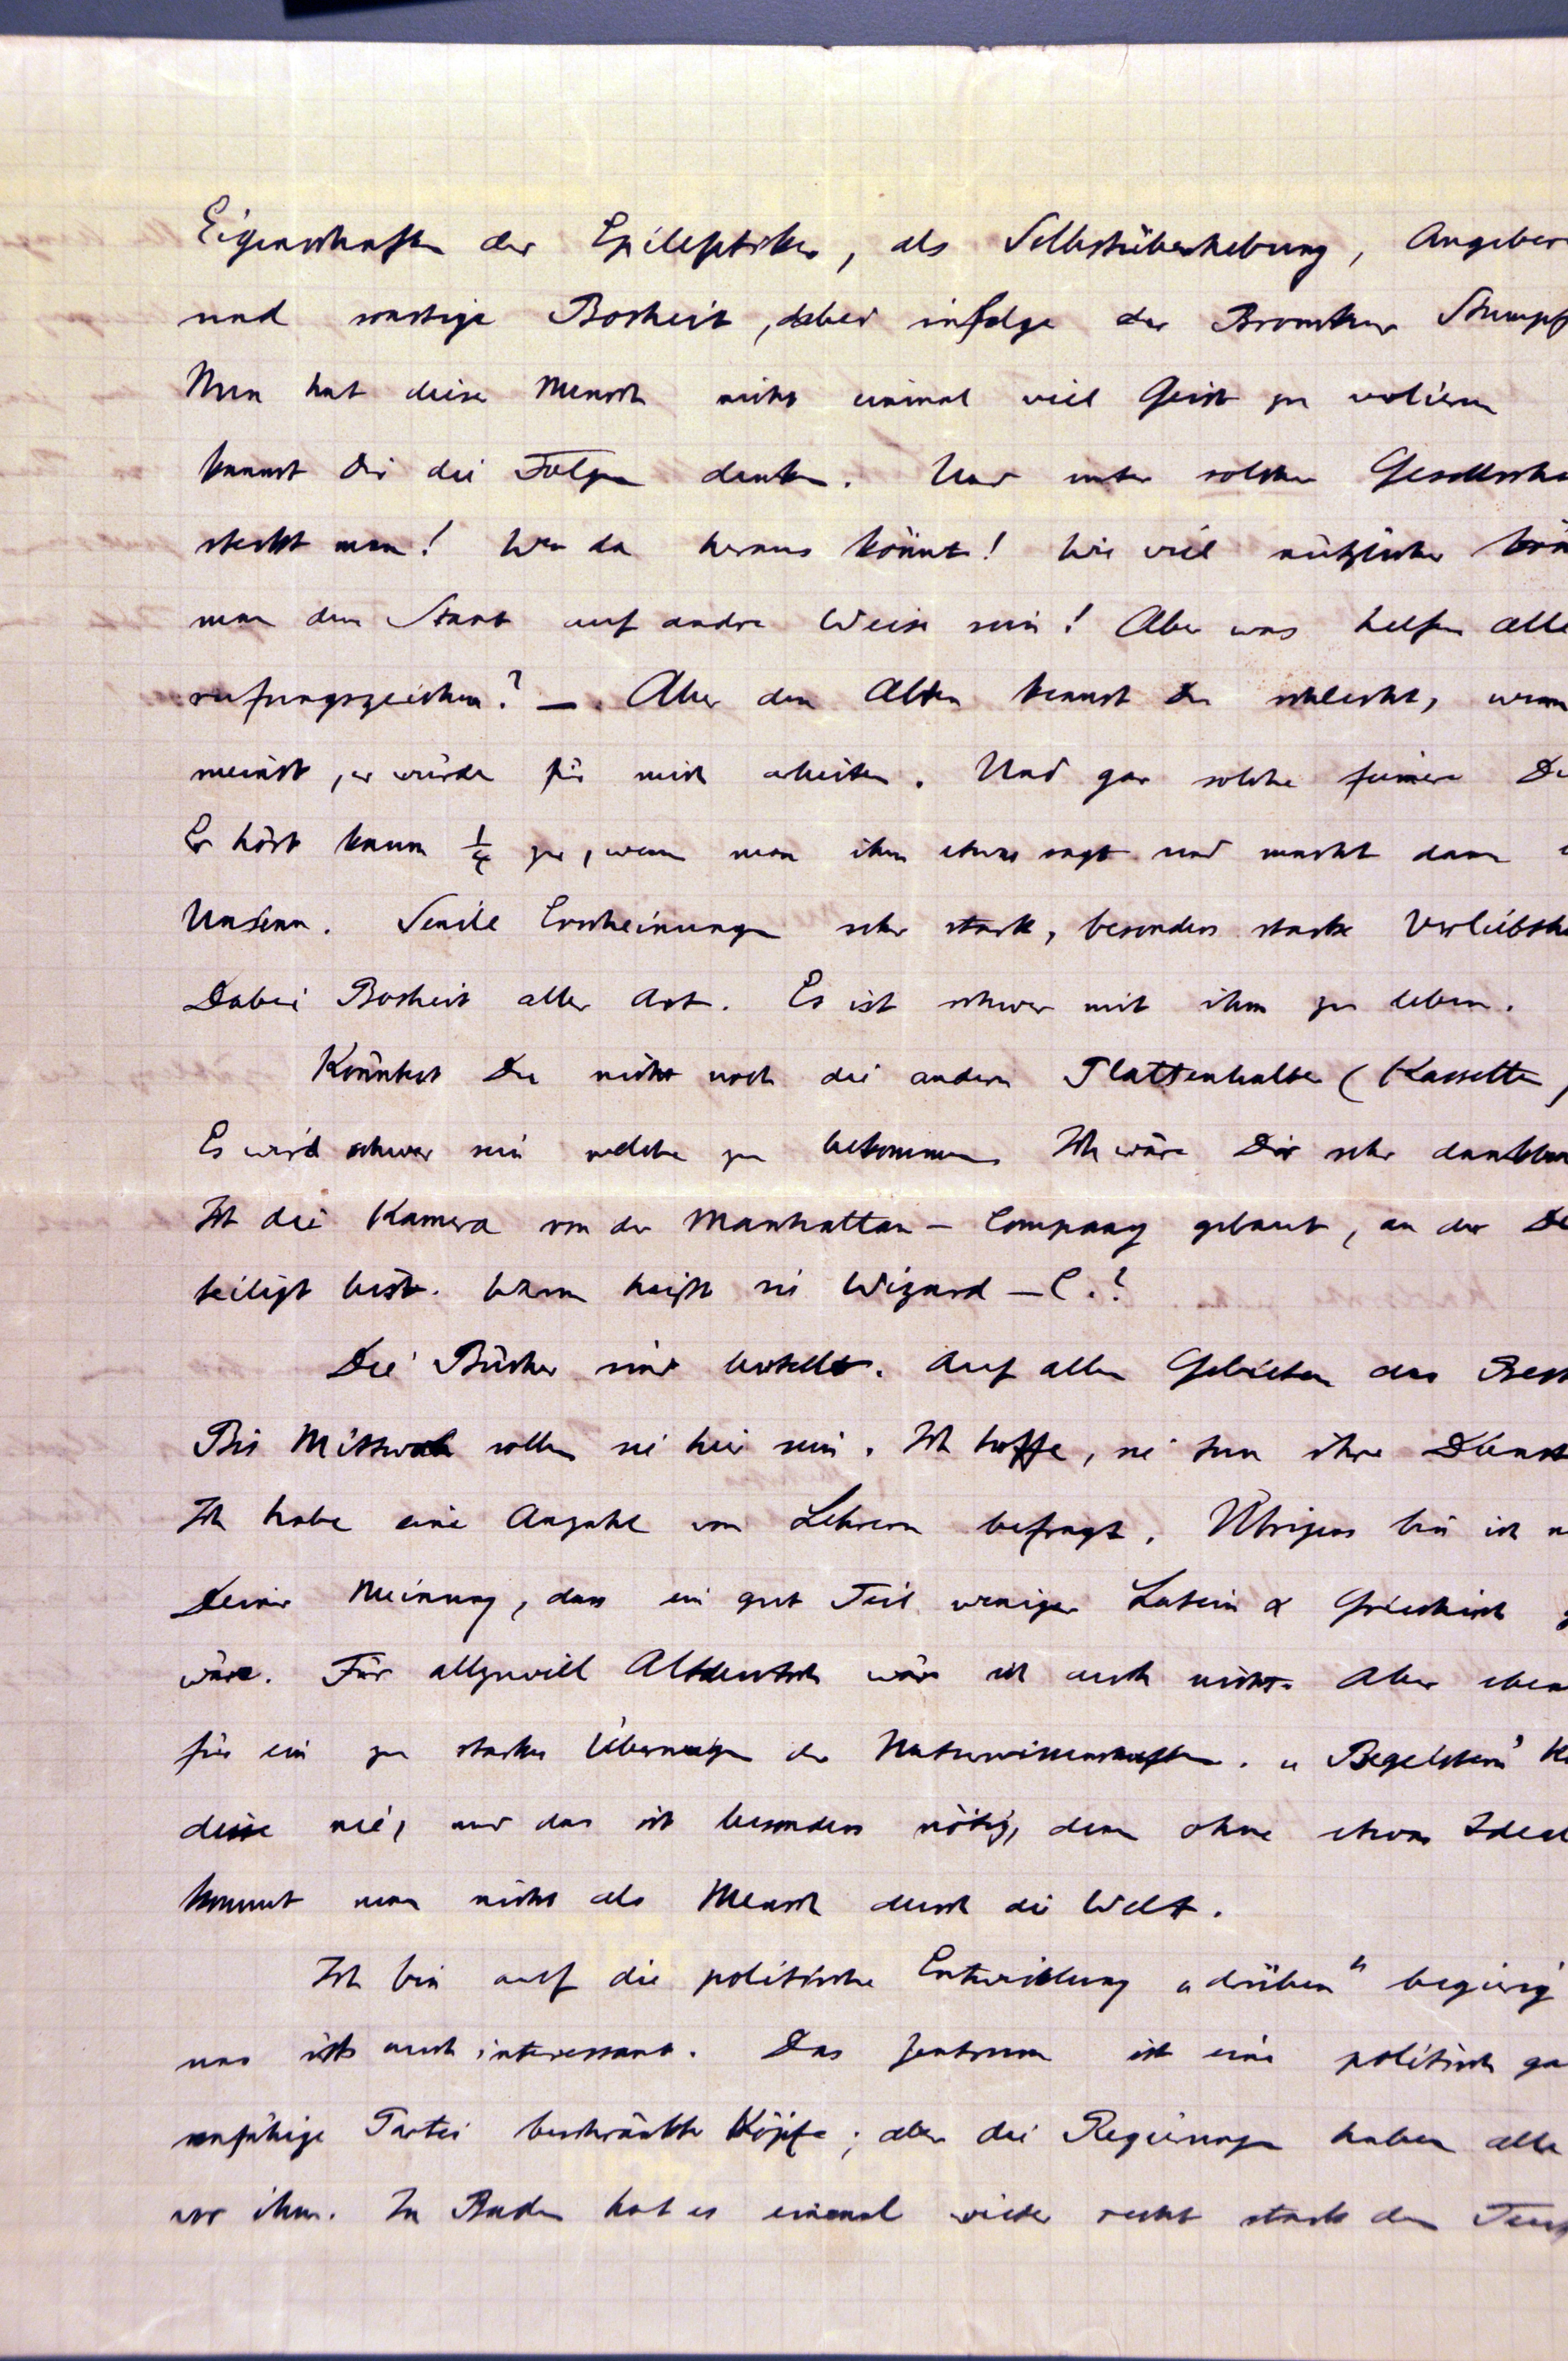 Eigenschaften der Epileptiker, als Selbstüberhebung, Angeber
und sonstige Bosheit, dabei infolge der Bromkur Stumpf
Nun hat dieser Mensch nicht einmal viel Geist zu verlieren
kannst Dir die Folgen denken. Und unter solcher Gesellscha
steckt man! Wer da heraus könnte! Wie viel nützlicher kön
man dem Staat auf andre Weise sein! Aber was helfen alle
rufungszeichen? — Aber den Alten kennst Du schlecht, wenn
meinst, er würde für mich arbeiten. Und gar solche feinere
Er hört kaum ¼ zu, wenn man ihm etwas sagt und macht dann
Unsinn. Senile Erscheinungen sehr stark, besonders starke Verliebthe
Dabei Bosheit aller Art. Es ist schwer mit ihm zu leben.
Könntest Du nicht noch die andern Plattenhalter (Kassetten)
Es wird schwer sein welche zu bekommen. Ich wäre Dir sehr dankbar
Ist die Kamera von der Manhattan - Company gebaut, an der De
teiligt bist. Warum heisst sie Wizard - C.?
Die Bücher sind bestellt. Auf allen Gebieten das Best
Bis Mittwoch sollen sie hier sein. Ich hoffe, sie tun ihre Dienst
Ich habe eine Anzahl von Lehrern befragt. Übrigens bin ich
Deiner Meinung, dass ein gut Teil weniger Latein & Griechisch g
wäre. Für allzuviel Altdeutsch wäre ich auch nicht. Aber eben
für ein zu starkes Überwiegen der Naturwissenschaften. „Begeistern" kö
diese nie, und das ist besonders nötig, denn ohne etwas Ideal
kommt man nicht als Mensch durch die Welt.
Ich bin auf die politische Entwicklung „drüben" begierig
uns ists auch interessant. Das Zentrum ist eine politisch ga
unfähige Partei beschränkter Köpfe; aber die Regierungen haben alle
vor ihm. In Baden hat es einmal wieder recht stark den